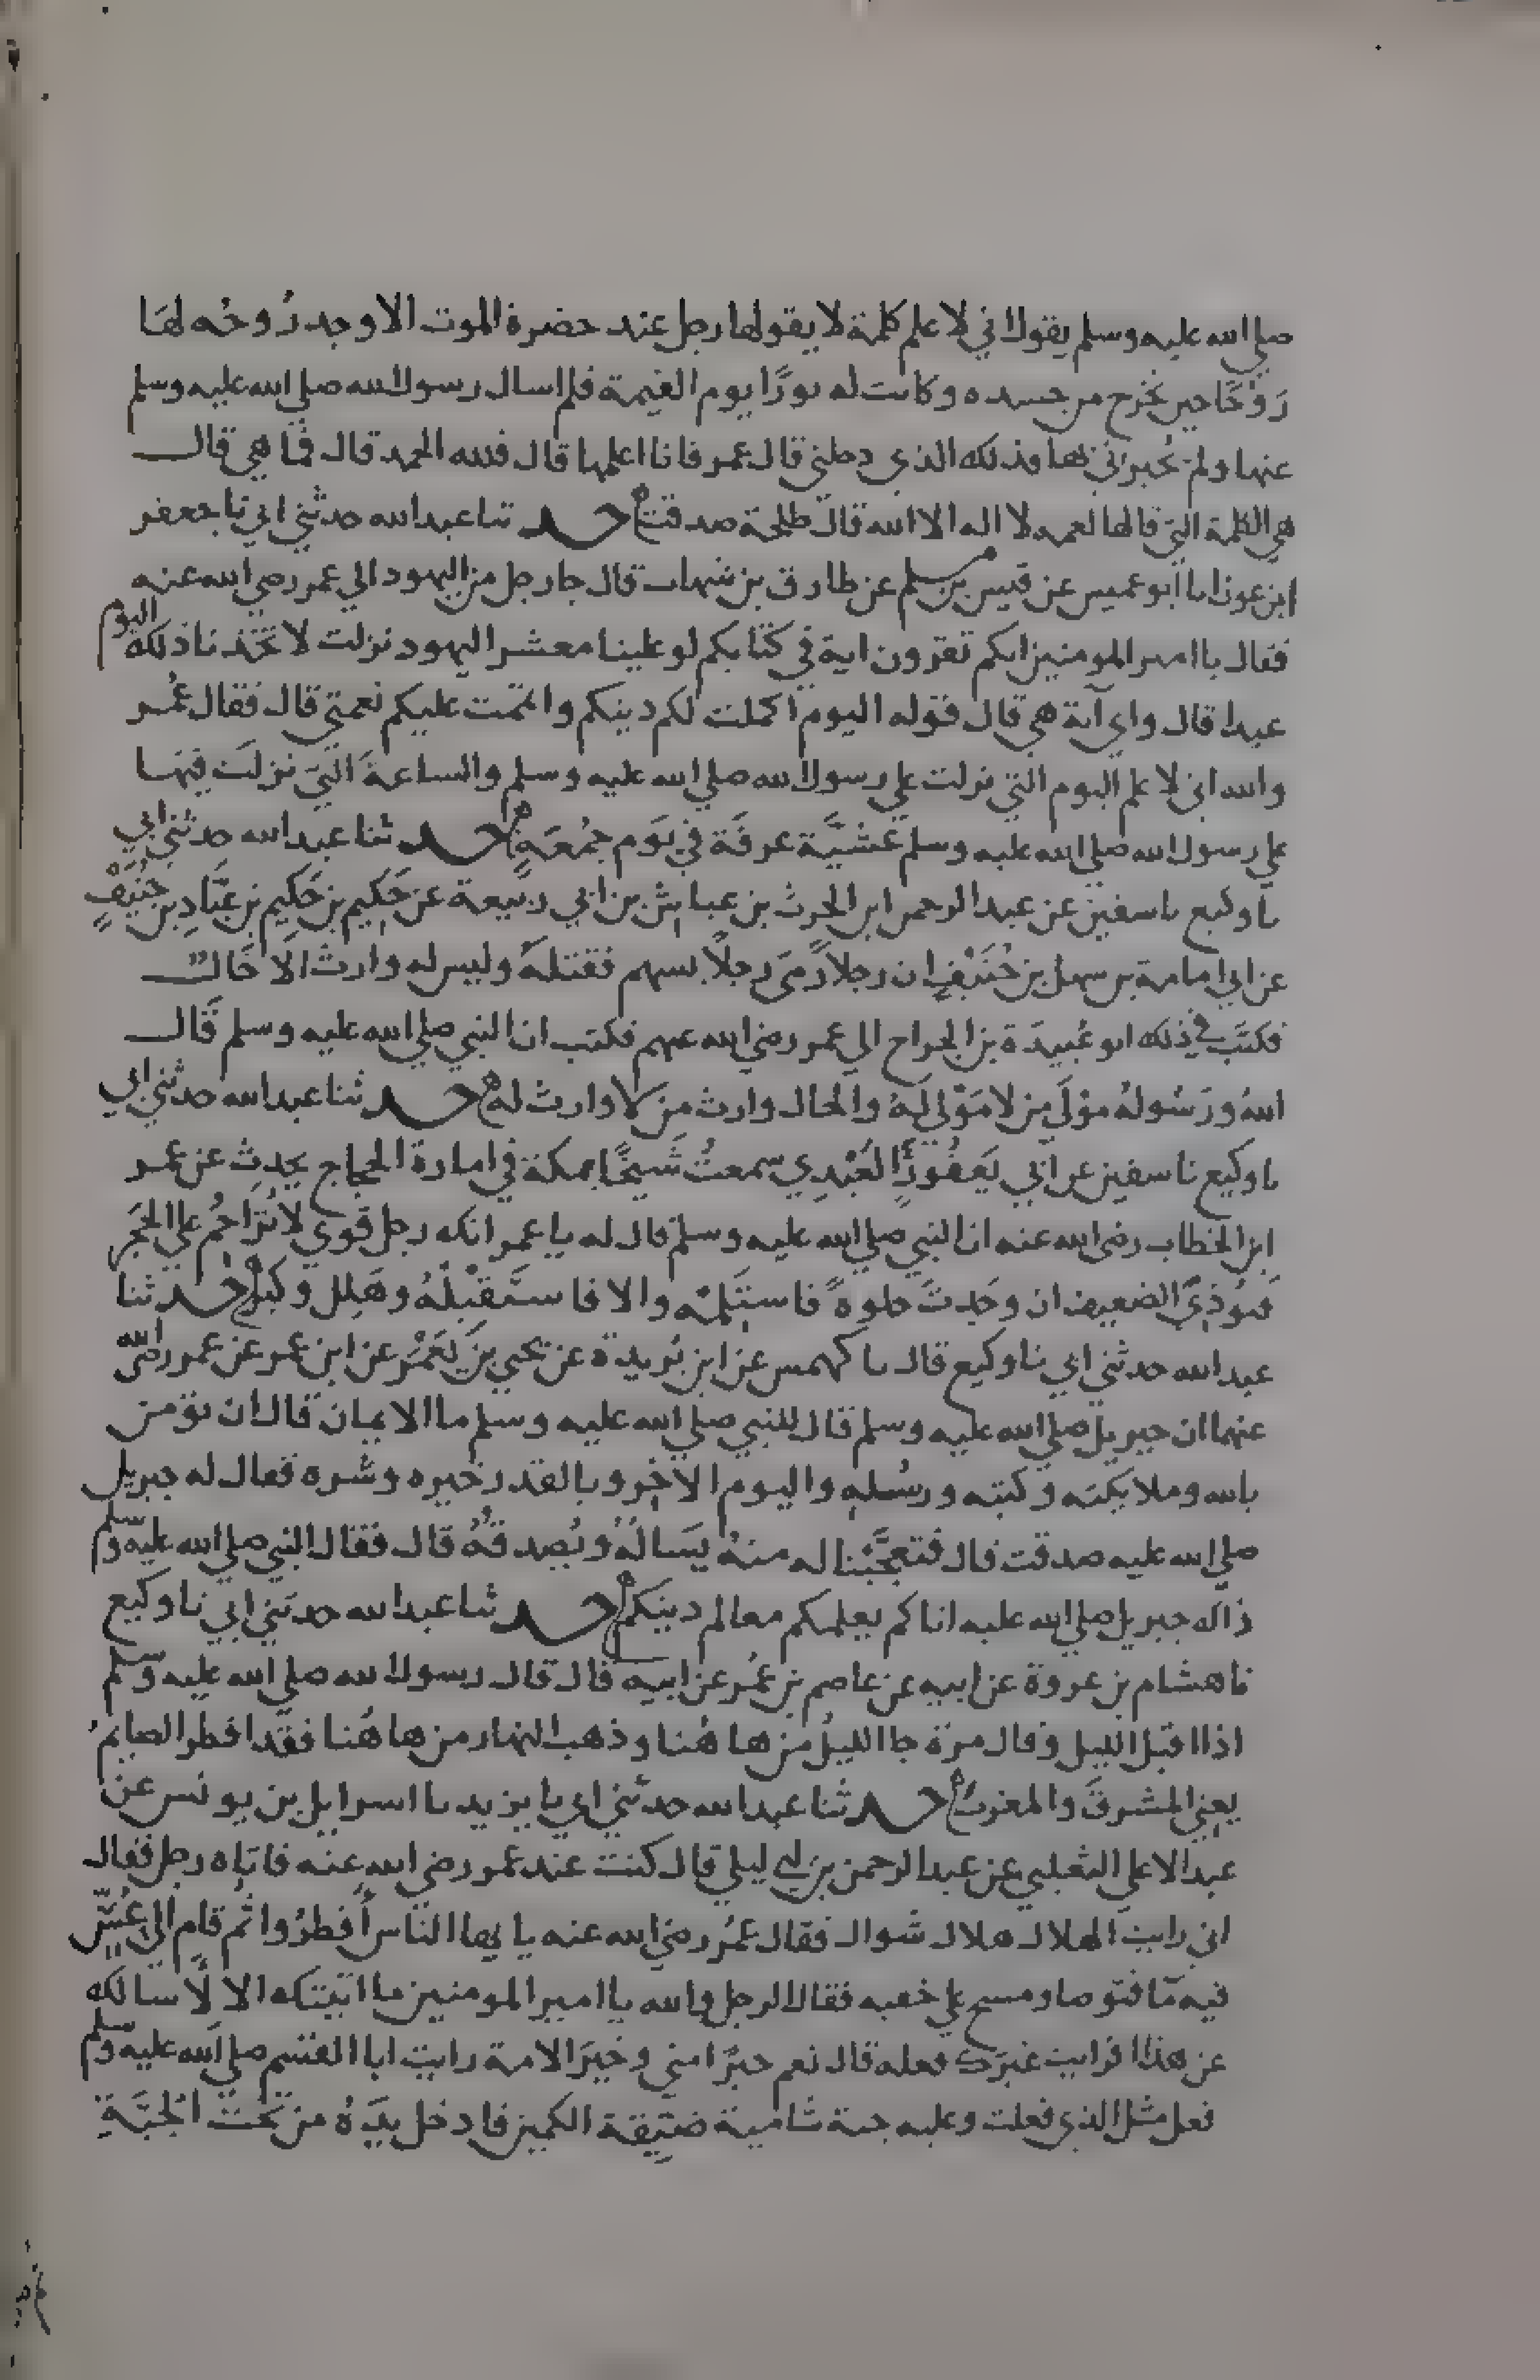 صلي الله عليه وسلم يقول اني لاعلم كلمة لا يقولها رجل عند حضرة الموت الا وجد رُوحُه لهَا
رَوْحًا حين تخرج من جسده وكانت له نورًا يوم القيمة فلم اسال رسول الله صلي الله عليه وسلم
عنها ولم يُخبرني بها فذلك الذي دخلني قال عمر فانا اعلمها قال فلله الحمد قال فما هي قال
هي الكلمة التي قالها لعمه لا اله الا الله قال طلحة صدقت حد ثنا عبد الله حدثني ابي نا جعفر
ابن عون انا ابو عميس عن قيس بن مسلم عن طارق بن شهاب قال جا رجل من اليهود الي عمر رضي الله عنه
فقال يا امير المومنين انكم تقرون اية في كتابكم لو علينا معشر اليهود نزلت لا تخذنا ذلك اليوم
عيدا قال واي آية هي قال قوله اليوم اكملت لكم دينكم واتممت عليكم نعمتي قال فقال عُمر
والله اني لا علم اليوم التي نزلت علي رسول الله صلي الله عليه وسلم والساعةَ التي نزلَت فيهَا
علي رسول الله صلي الله عليه وسلم عَشيَّةَ عرفَة في يَوم جمُعَةٍ حد ثنا عبد الله حدثني ابي
نا وكيع نا سفين عن عبد الرحمن ابن الحرث بن عياش بن ابي ربيعة عن حَكِيم بن حَكِيم بن عبَّادِ بن حُنَيْفٍ
عن ابي امامة بن سهل بن حُنَيْفٍ ان رجلا رَمَى رجلاً بسهم فقتلهُ وليس له وارث الا خَالٌ
فكتَبَ في ذلك ابو عُبيدَة بن الجراح الي عمر رضي الله عنهم فكتب ان النبي صلي الله عليه وسلم قَال
اللهُ ورَسُولهُ مَوْلَي من لا مَوْلي لَهُ والخال وارث من لا وارث له حد ثنا عبد الله حدثني ابي
نا وكيع نا سفين عن ابي يَعفُورٍ العَبْدِي سمعتُ شَيخًا بمكة في امارة الحجاج يحدِث عن عمر
ابن الخطاب رضي الله عنه ان النبي صلي الله عليه وسلم قال له يا عمر انك رجل قوي لا تُزَاحمُ علي الحَجَر
فتوذيَ الضعيف ان وَجَدتَ خلوةً فاستَلِمْه والا فاستَقبِلْهُ وهَلِل وكبر حد ثنا
عبد الله حدثني ابي نا وكيع قال نا كهمس عن ابن بُريدة عن يحيي بن يَعمَرُ عن ابن عمر عن عمر رضي الله
عنهما ان جبريل صلي الله عليه وسلم قال للنبي صلي الله عليه وسلم ما الايمان قال ان تؤمن
بالله وملايكته وكتبه ورسُله واليوم الاخِر وبالقدر خيره وشره فقال له جبريل
صلي الله عليه صدقت قال فتعجَّبْنا له منهُ يَسَالُهُ ويُصدقُهُ قال فقال النبي صلي الله عليه وسلم
ذاك جبريل صلي الله عليه اتاكم يعلمكم معالم دينكم حد ثنا عبد الله حدثني ابي نا وكيع
نا هشام بن عروة عن ابيه عن عاصم بن عُمر عن ابيه قال قال رسول الله صلي الله عليه وسلم
اذا اقبل الليل وقال مرة جا الليلُ من ها هُنا وذهب النهار من ها هُنا فقد افطر الصايمُ
يعني المشرقَ والمغربَ حد ثنا عبد الله حدثني ابي نا يزيد نا اسرايل بن يونس عن
عبد الاعلي الثعلبي عن عبد الرحمن بن ابي ليلي قال كنت عند عمر رضي الله عنه فاتاه رجل فقال
اني رايت الهلال هلال شوال فقال عمُر رضي الله عنه يا يها الناس أفطِرُوا ثُم قام الي عُسٍّ
فيه مَا فتوضا ومسح علي خفيه فقال الرجل والله يا امير المومنين ما اتيتك الا لاسالك
عن هذا افرايت غيرَك فعله قال نعم خيرًا مني وخيرَ الامة رايت ابا القسم صلي الله عليه وسلم
فعل مثل الذي فعلت وعليه جبة شامية ضيِّقة الكمين فادخل يدَهُ من تحت الجبَّةِ